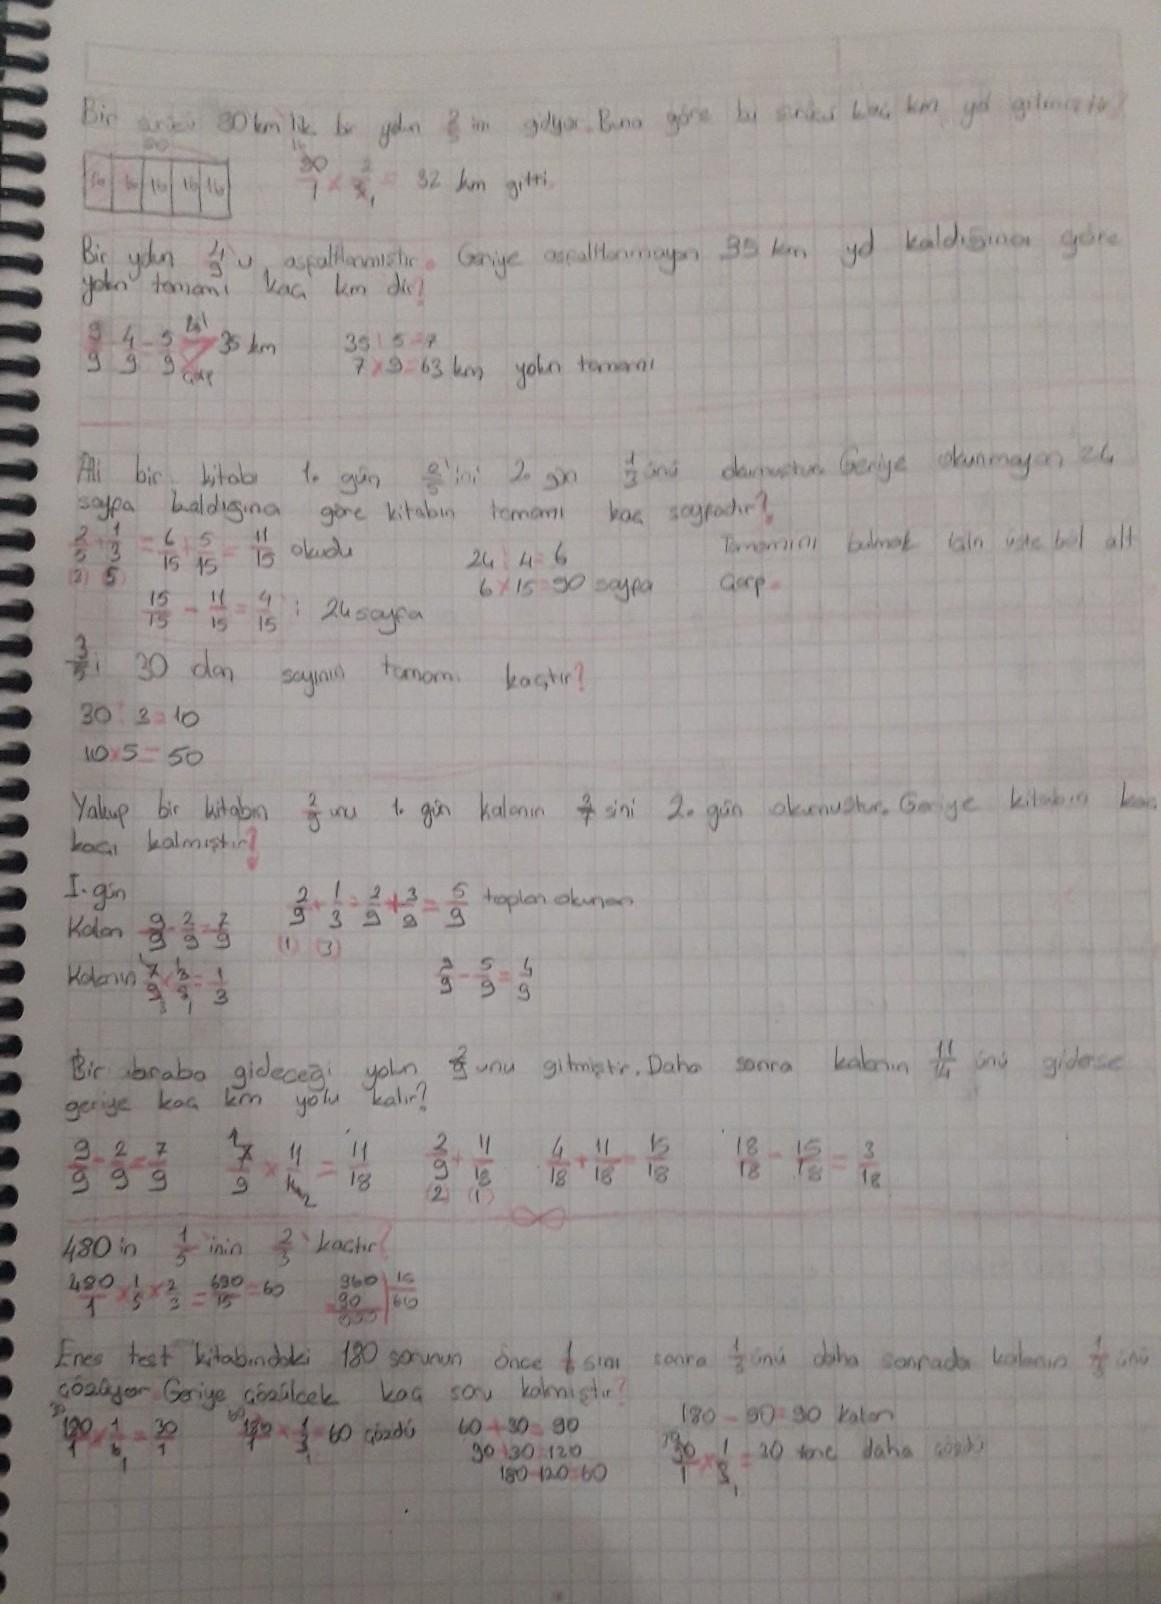 Bir sürücü 80 km lik bir yolun 2/5 ini gidiyor. Buna göre bu sürücü kaç km yol gitmiştir?
80
16 16 16 16 16
80/1 × 2/5 = 32 km gitti.
Bir yolun 4/9 u asfaltlanmıştır. Geriye asfaltlanmayan 35 km yol kaldığına göre
yolun tamamı kaç km dir?
9/9 - 4/9 = 5/9 35 km
böl
çarp
35 : 5 = 7
7 × 9 = 63 km yolun tamamı
Ali bir kitabı 1. gün 2/5'ini 2. gün 1/3 ünü okumuştur. Geriye okunmayan 24
sayfa kaldığına göre kitabın tamamı kaç sayfadır?
2/5 + 1/3 = 6/15 + 5/15 = 11/15 okudu
15/15 - 11/15 = 4/15 : 24 sayfa
24 : 4 = 6
6 × 15 = 90 sayfa
Tamamını bulmak için üste böl alt
çarp.
3/5 i 30 olan sayının tamamı kaçtır?
30 : 3 = 10
10 × 5 = 50
Yakup bir kitabın 2/9 unu 1. gün kalanın 3/7 sini 2. gün okumuştur. Geriye kitabın kaç
kaçı kalmıştır?
I. gün
Kalan 9/9 - 2/9 = 7/9
Kalanın 7/9 × 3/7 = 1/3
2/9 + 1/3 = 2/9 + 3/9 = 5/9 toplam okunan
(1) (3)
9/9 - 5/9 = 4/9
Bir araba gideceği yolun 2/9 unu gitmiştir. Daha sonra kalanın 11/14 ünü giderse
geriye kaç km yolu kalır?
9/9 - 2/9 = 7/9
7/9 × 11/14 = 11/18
2/9 + 11/18
(2) (1)
4/18 + 11/18 = 15/18
18/18 - 15/18 = 3/18
480 in 1/5 inin 2/3 kaçtır?
480/1 × 1/5 × 2/3 = 690/15 = 60
960 | 15
90 | 60
Enes test kitabındaki 180 sorunun önce 1/6 sını sonra 1/3 ünü daha sonrada kalanın 1/3 ünü
çözüyor. Geriye çözülcek kaç soru kalmıştır?
180/1 × 1/6 = 30/1
180/1 × 1/3 = 60 çözdü
60 + 30 = 90
90 + 30 = 120
180 - 120 = 60
180 - 90 = 90 kalan
90/1 × 1/3 = 30 tane daha çözdü